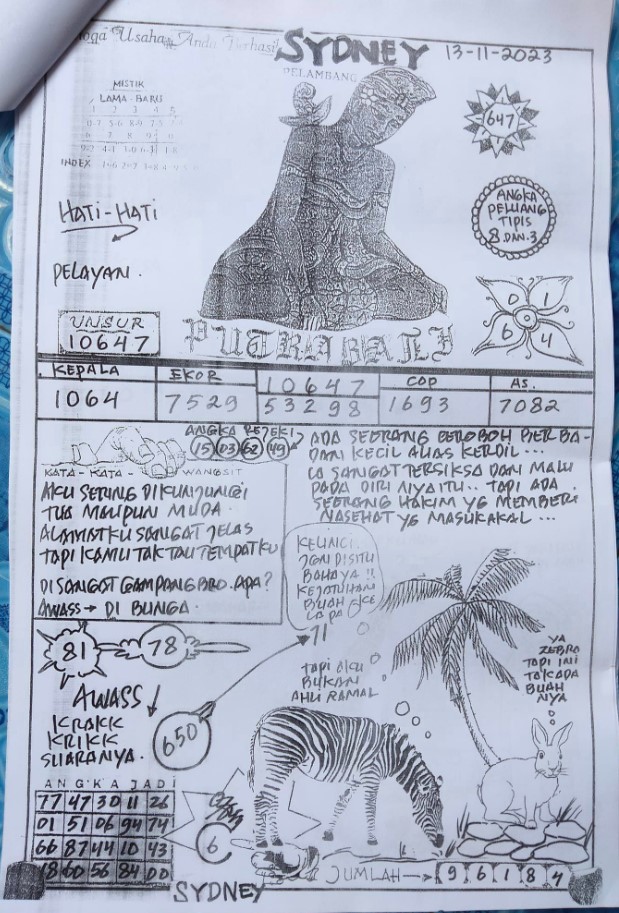 Usaha Anda Berhasil
SYDNEY
13-11-2023
PELAMBANG
MISTIK
LAMA-BARU
1 2 3 4 5
INDEX
647
HATI-HATI
ANGKA
PELUANG
TIPIS
8 DAN 3
PELAYAN.
0 1
6 4
UNSUR
10647
PUTRABALI
KEPALA
EKOR
10647
COP
AS.
1064
7529
53298
1693
7082
ANGKA REJEKI
15 03 62 49
ADA SEORANG BEROBOH BERBA-
DAN KECIL ALIAS KERDIL...
IA SANGAT TERSIKSA DAN MALU
PADA DIRI NIYA ITU.. TAPI ADA
SEORANG HAKIM YG MEMBERI
NASEHAT YG MASUKAKAL...
KATA-KATA-WANGSIT
AKU SERING DIKUNJUNGI
TUA MAUPUN MUDA.
ALAMATKU SANGAT JELAS
TAPI KAMU TAK TAU TEMPATKU
DISANGAT GAMPANG BRO. APA?
AWASS → DI BUNGA.
KELINCI.
JGN DISITU
BAHAYA !!
KEJATUHAN
BUAH KE
LAPA
71
81
78
TAPI AKU
BUKAN
AHLI RAMAL
YA
ZEBRA
TAPI INI
TAKADA
BUAH
NYA
AWASS
KRAKK
KRIKK
SUARANYA.
650
ANGKA JADI
77 47 30 11 26
01 51 06 94 74
66 87 44 10 43
18 60 56 84 00
6
JUMLAH → 9 6 1 8 4
SYDNEY